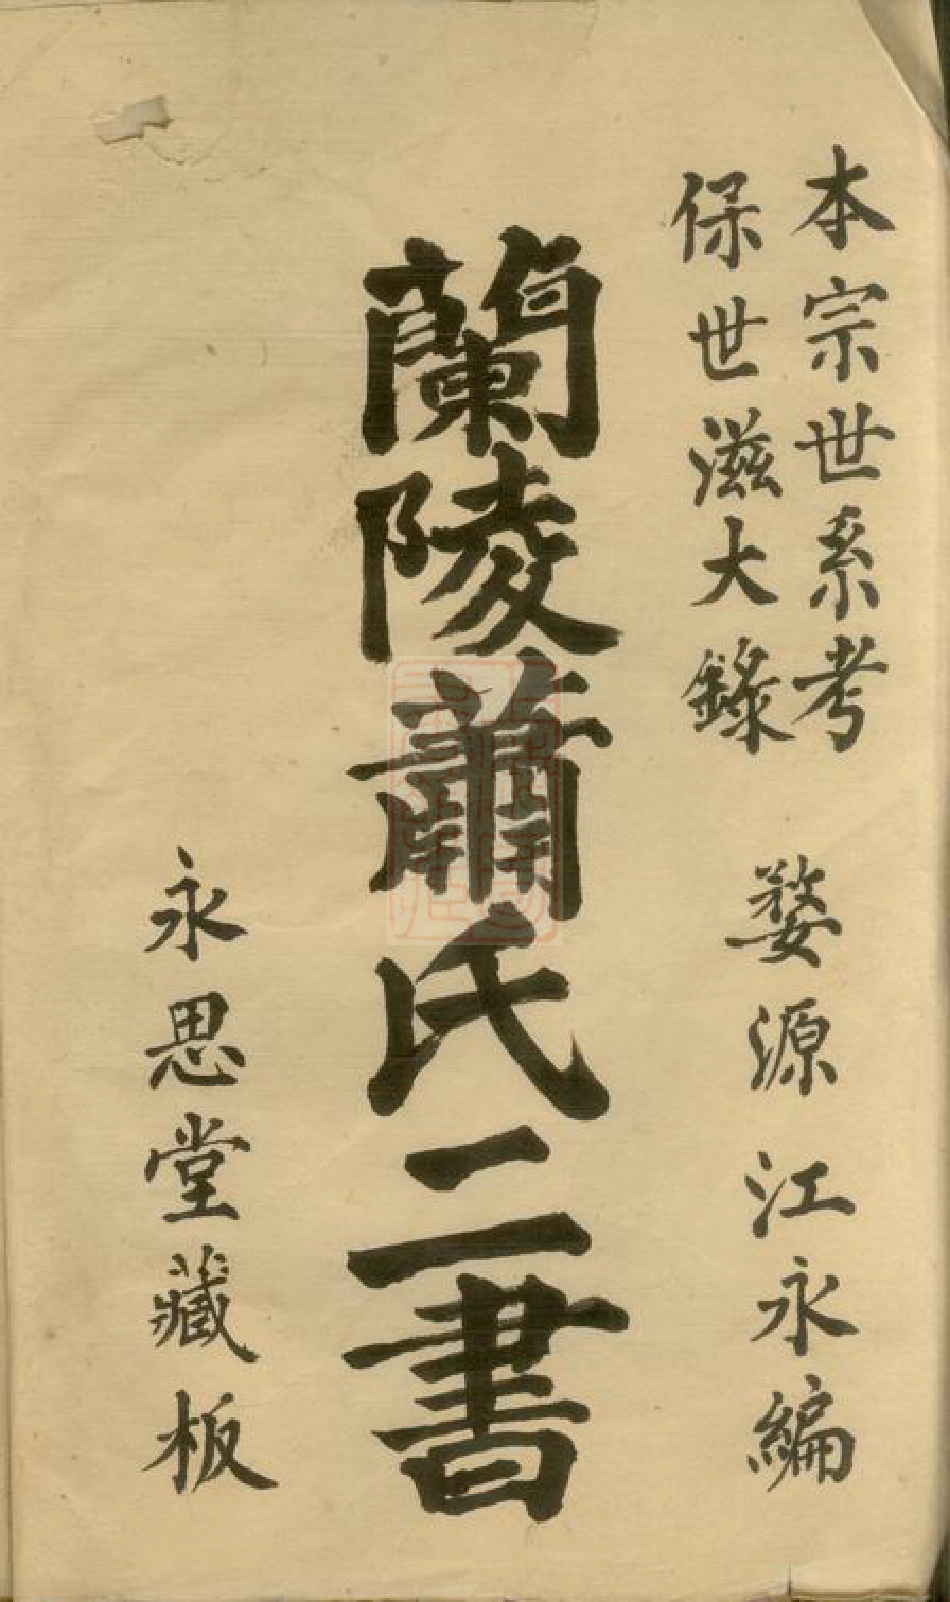 本宗世系考
保世滋大錄
婺源江永編
蘭陵蕭氏二書
永思堂藏板